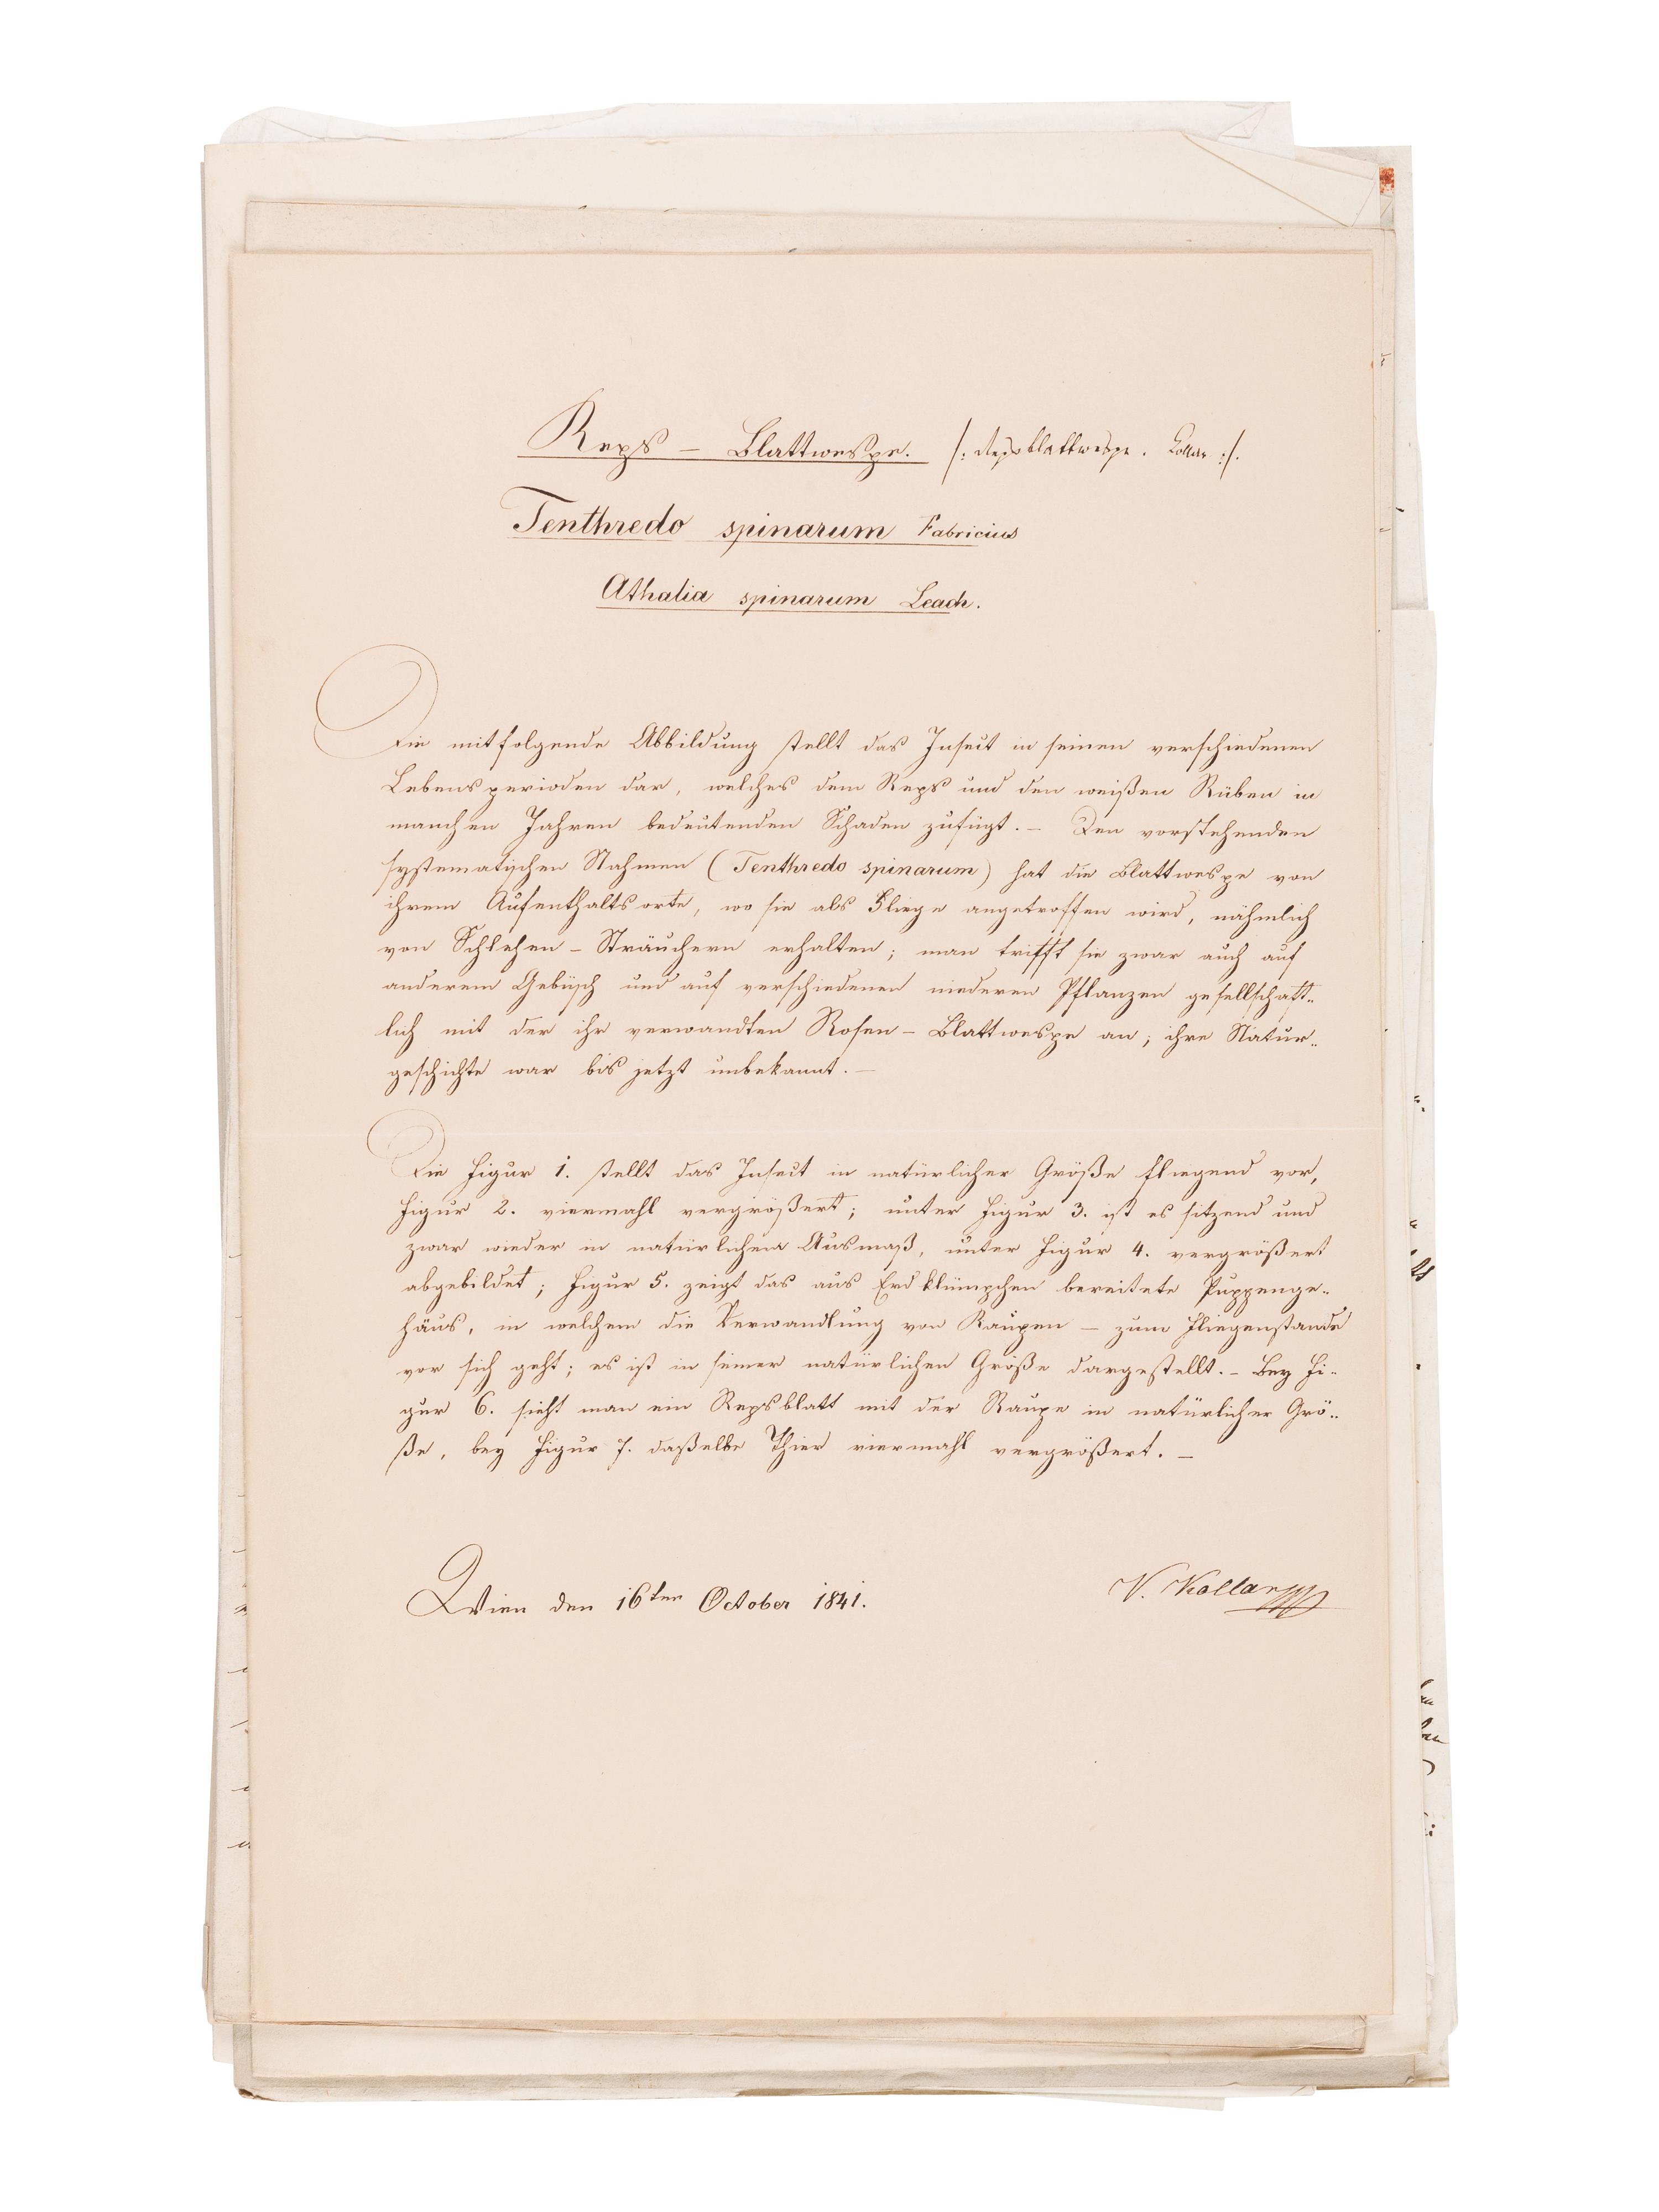 Reps – Blattwespe. /: Repsblattwespe. Kollar :/.
Tenthredo spinarum Fabricius
Athalia spinarum Leach.
Die mitfolgende Abbildung stellt das Insect in seinen verschiedenen
Lebensperioden dar, welches dem Reps und den weißen Rüben in
manchen Jahren bedeutenden Schaden zufügt. – Den vorstehenden
systematischen Nahmen (Tenthredo spinarum) hat die Blattwespe von
ihrem Aufenthaltsorte, wo sie als Fliege angetroffen wird, nähmlich
von Schlehen – Sträuchern erhalten; man trifft sie zwar auch auf
anderem Gebüsch und auf verschiedenen niederen Pflanzen gesellschaft„
lich mit der ihr verwandten Rosen – Blattwespe an; ihre Natur„
geschichte war bis jetzt unbekannt. –
Die Figur 1. stellt das Insect in natürlicher Größe fliegend vor,
Figur 2. viermahl vergrößert; unter Figur 3. ist es sitzend und
zwar wieder in natürlichem Ausmaß, unter Figur 4. vergrößert
abgebildet; Figur 5. zeigt das aus Erdklümpchen bereitete Puppenge„
häus, in welchem die Verwandlung von Raupen – zum Fliegenstande
vor sich geht; es ist in seiner natürlichen Größe dargestellt. – Bey Fi„
gur 6. sieht man ein Repsblatt mit der Raupe in natürlicher Grö„
ße, bey Figur 7. daßelbe Thier viermahl vergrößert. –
Wien den 16ten October 1841.
V. Kollar